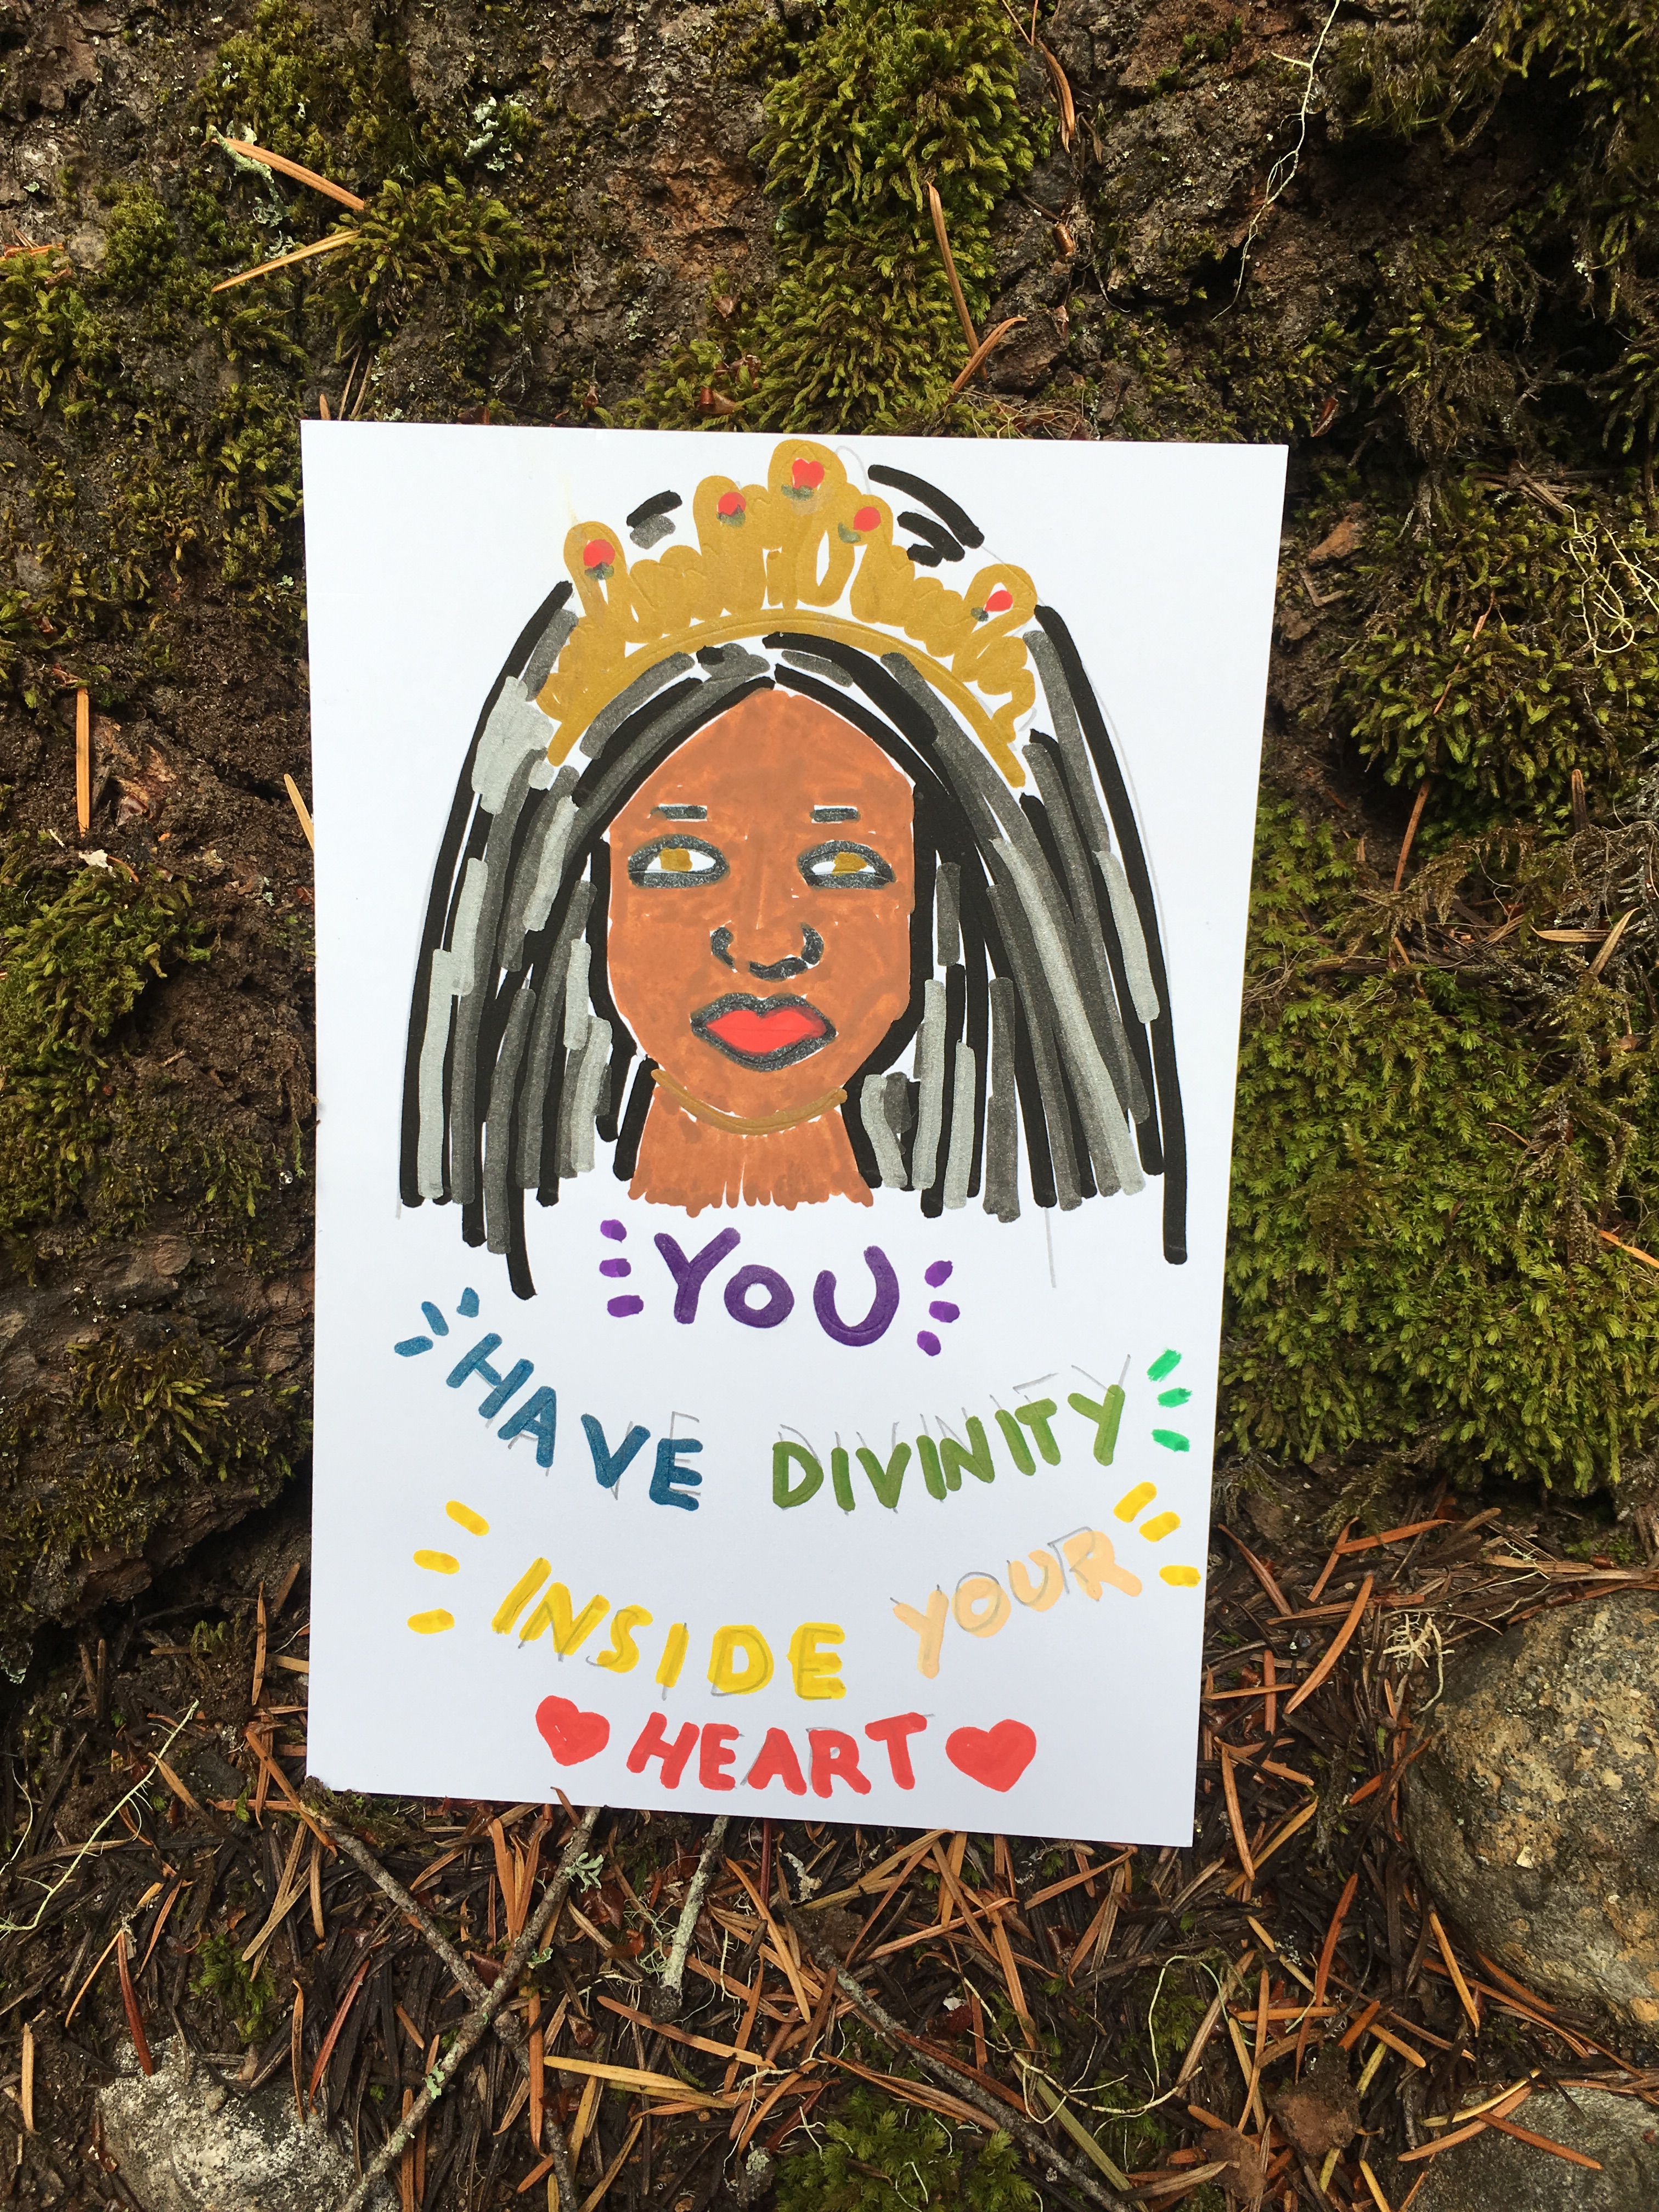 YOU
HAVE DIVINITY
INSIDE YOUR
HEART